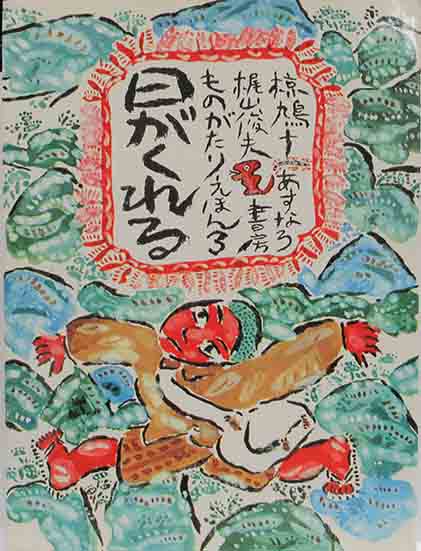 椋鳩十
あすなろ書房
梶山俊夫
ものがたりえほん3
日がくれる